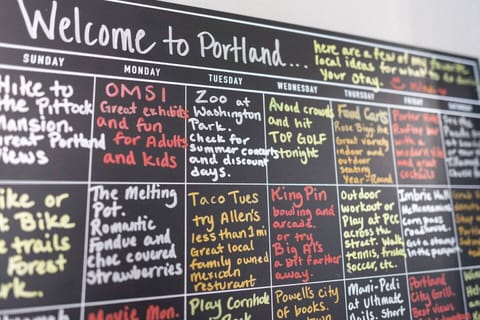 Welcome to Portland...
here are a few of my favorite
local ideas for what to do
your stay.
SUNDAY
MONDAY
TUESDAY
WEDNESDAY
THURSDAY
FRIDAY
Hike to
the Pittock
Mansion.
Great Portland
Views
OMSI
Great exhibits
and fun
for Adults
and Kids
Zoo at
Washington
Park.
Check for
summer concerts
and discount
days.
Avoid crowds
and hit
TOP GOLF
tonight
Food Carts
Rose Bigi the
Great variety
indoor and
outdoor
Seating
Year-Round
Porter Hotel
Rooftop bar
with a
modern vibe
and great
cocktails
ike or
t Bike
e trails
Forest
ark.
The Melting
Pot.
Romantic
Fondue and
choc covered
strawberries
Taco Tues
try Allen's
less than 1 mi
Great local
family owned
mexican
resturant
King Pin
bowling and
arcade.
or try
Big Al's
a bit farther
away.
Outdoor
workout or
Play at PCC
across the
street. Walk,
tennis, frisbee
Soccer, etc.
Imbrie Hall
McMenamins
roadhouse.
Get a stamp
in the
Movie
Play Cornhole
Powell's city
of books.
Mani-Pedi
at Ultimate
Nails. Short
Portland
City Grill.
Best Views